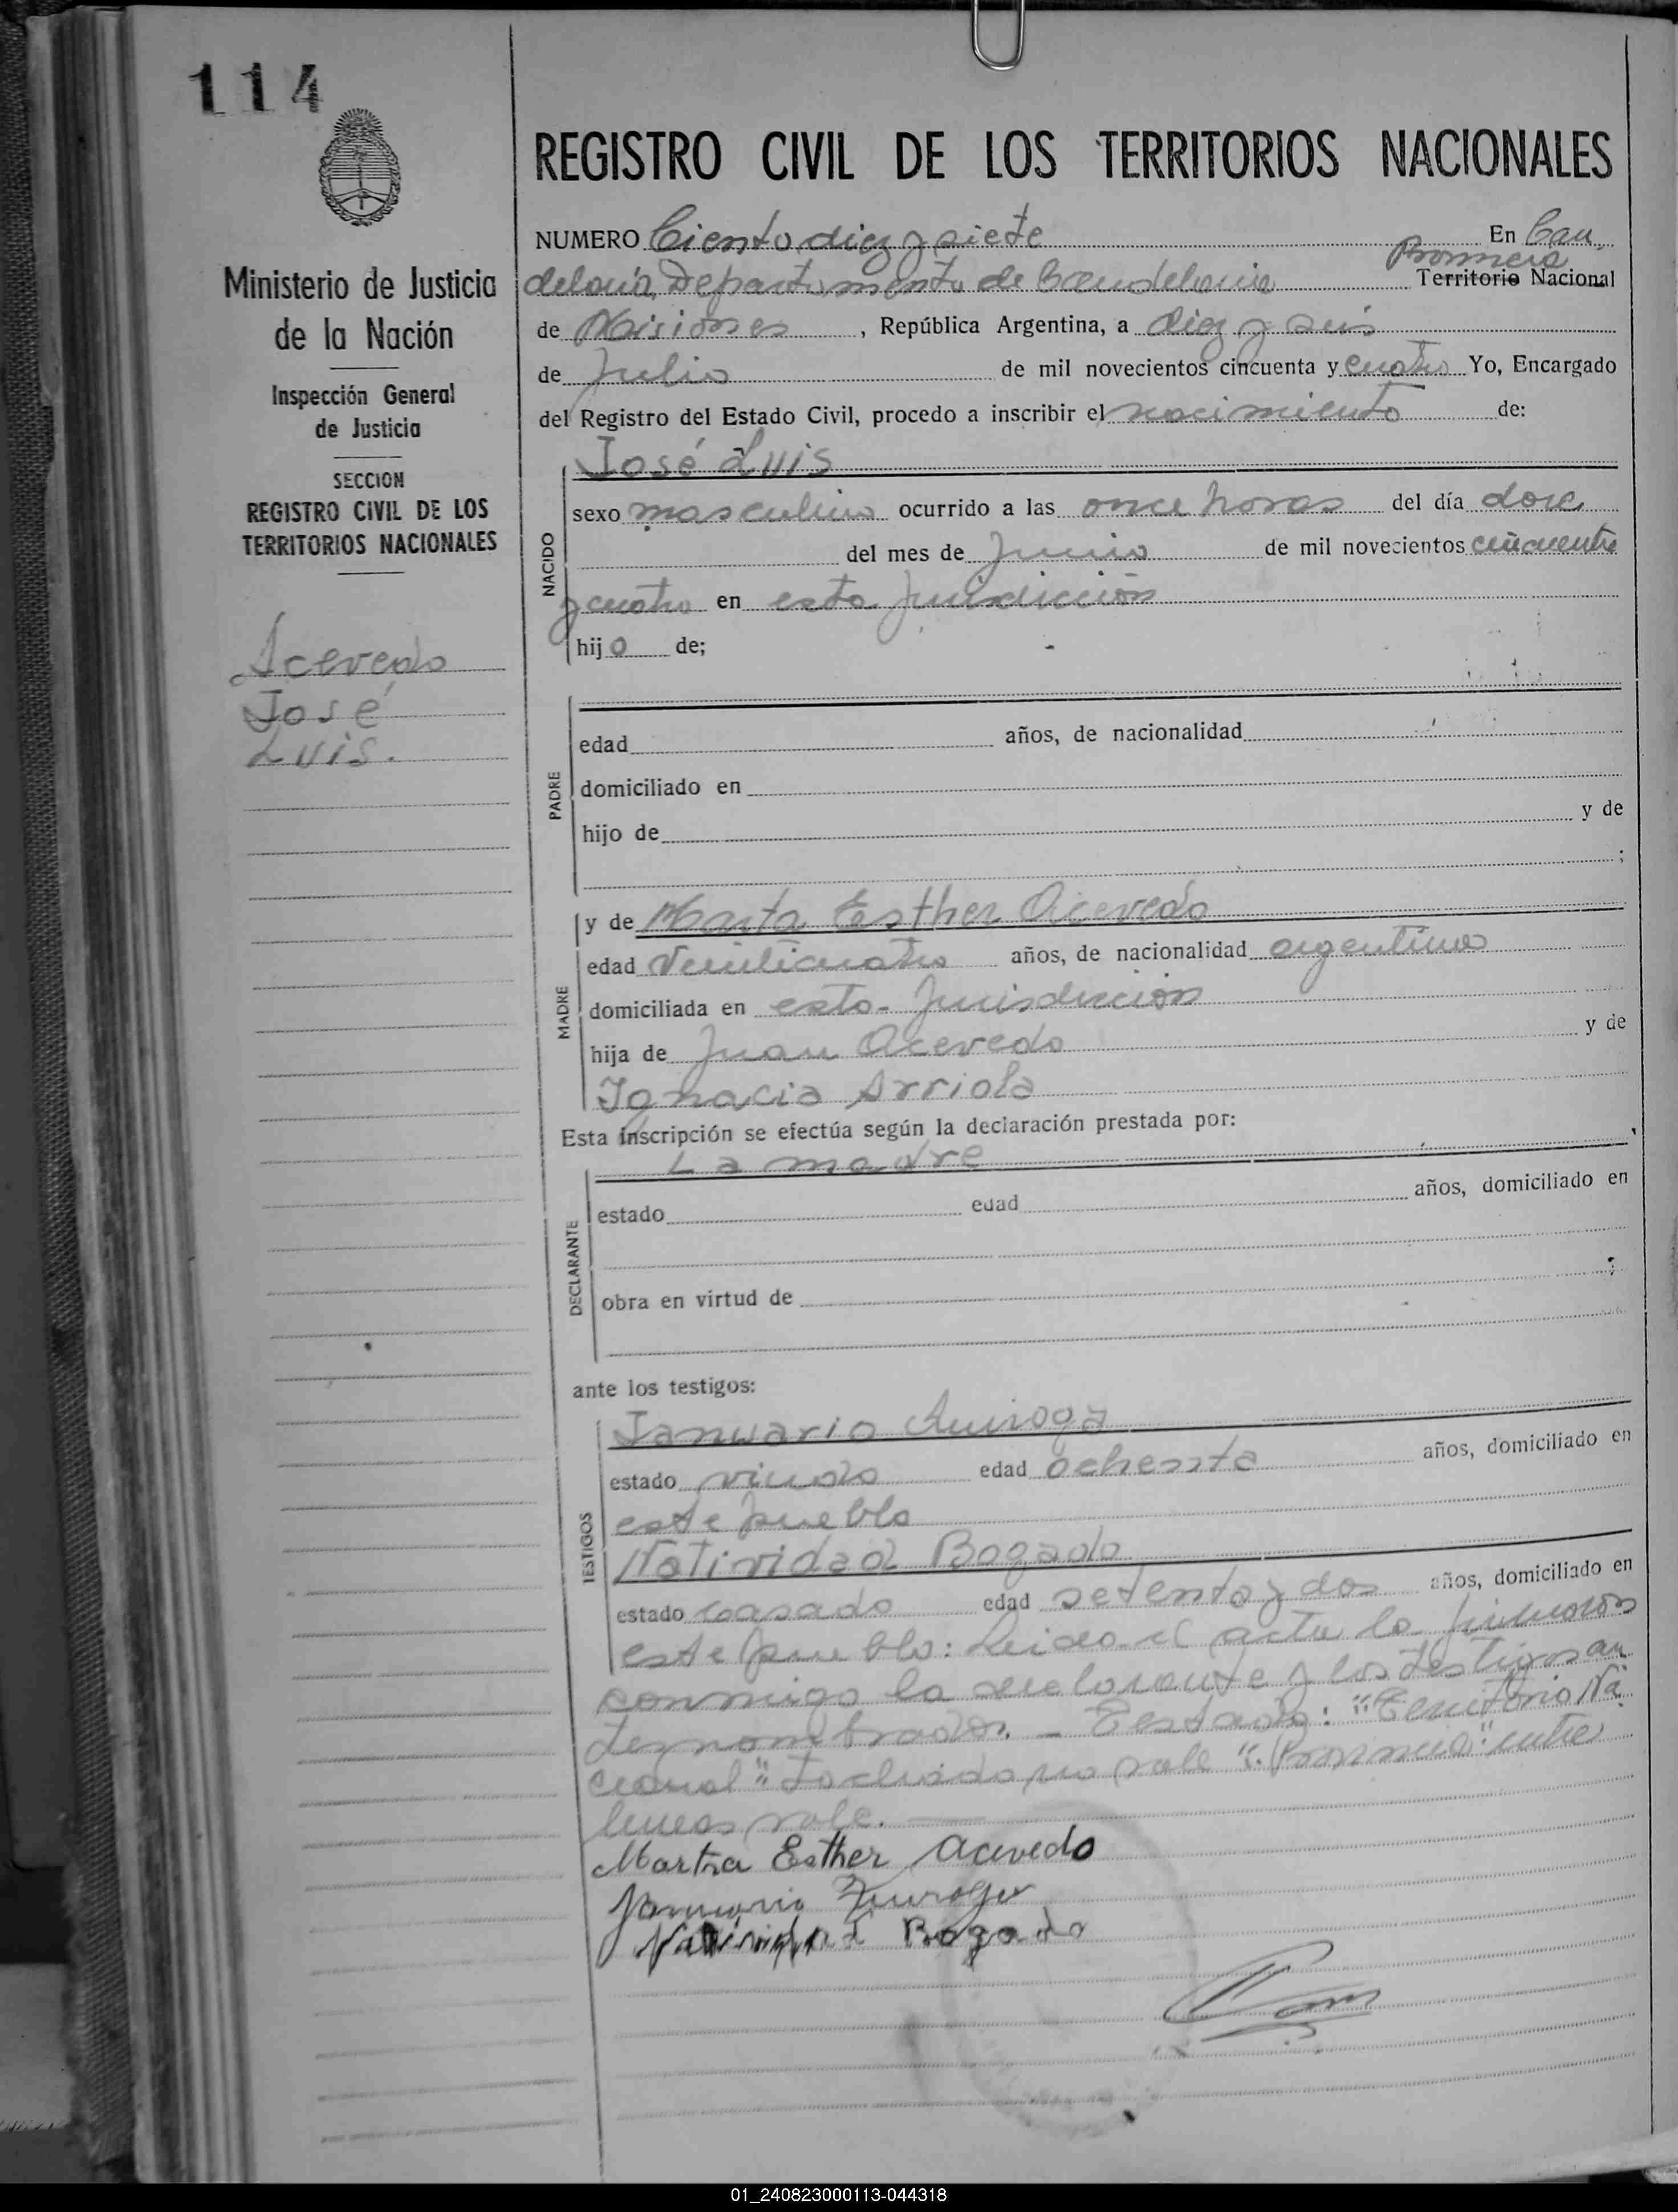 114
REGISTRO CIVIL DE LOS TERRITORIOS NACIONALES
Ministerio de Justicia
de la Nación
Inspección General
de Justicia
SECCION
REGISTRO CIVIL DE LOS
TERRITORIOS NACIONALES
Acevedo
José
Luis.
NUMERO Ciento diez y siete En Can
Provincia
delaria, Departamento de Candelaria Territorio Nacional
de Misiones, República Argentina, a diez y seis
de Julio de mil novecientos cincuenta y cuatro Yo, Encargado
del Registro del Estado Civil, procedo a inscribir el nacimiento de:
NACIDO
José Luis
sexo masculino ocurrido a las once horas del día doce
del mes de Junio de mil novecientos cincuenta
y cuatro en esta Jurisdicción
hijo de;
PADRE
edad años, de nacionalidad
domiciliado en
hijo de y de
;
MADRE
y de Marta Esther Acevedo
edad Veinticuatro años, de nacionalidad argentina
domiciliada en esta Jurisdicción
hija de Juan Acevedo y de
Ignacia Arriola
Esta inscripción se efectúa según la declaración prestada por:
La madre
DECLARANTE
estado edad años, domiciliado en
;
obra en virtud de
ante los testigos:
TESTIGOS
Januario Quiroga
estado viudo edad ochenta años, domiciliado en
este pueblo
Natividad Bogado
estado casado edad setenta y dos años, domiciliado en
este pueblo: Leida el acta la firmaron
conmigo la declarante y los testigos an
tesnombrados. - Testado: "Territorio Na
cional" tachado no vale "Provincia" entre
lineas vale.
Martha Esther Acevedo
Januario Quiroga
Natividad Bogado
01_240823000113-044318